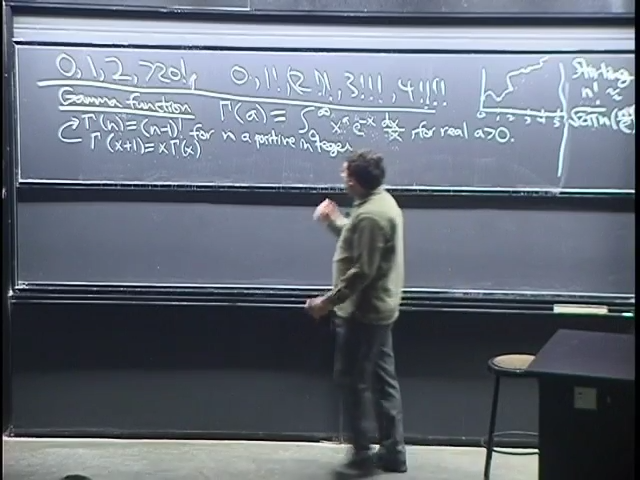 0, 1, 2, 720!,
0, 1!, (2!)!, 3!!!, 4!!!!
Gamma function
Γ(a) = ∫₀^∞ x^a e^-x dx/x, for real a>0.
Γ(n)=(n-1)! for n a positive integer
Γ(x+1)=xΓ(x)
0 1 2 3 4 5
n! ≈